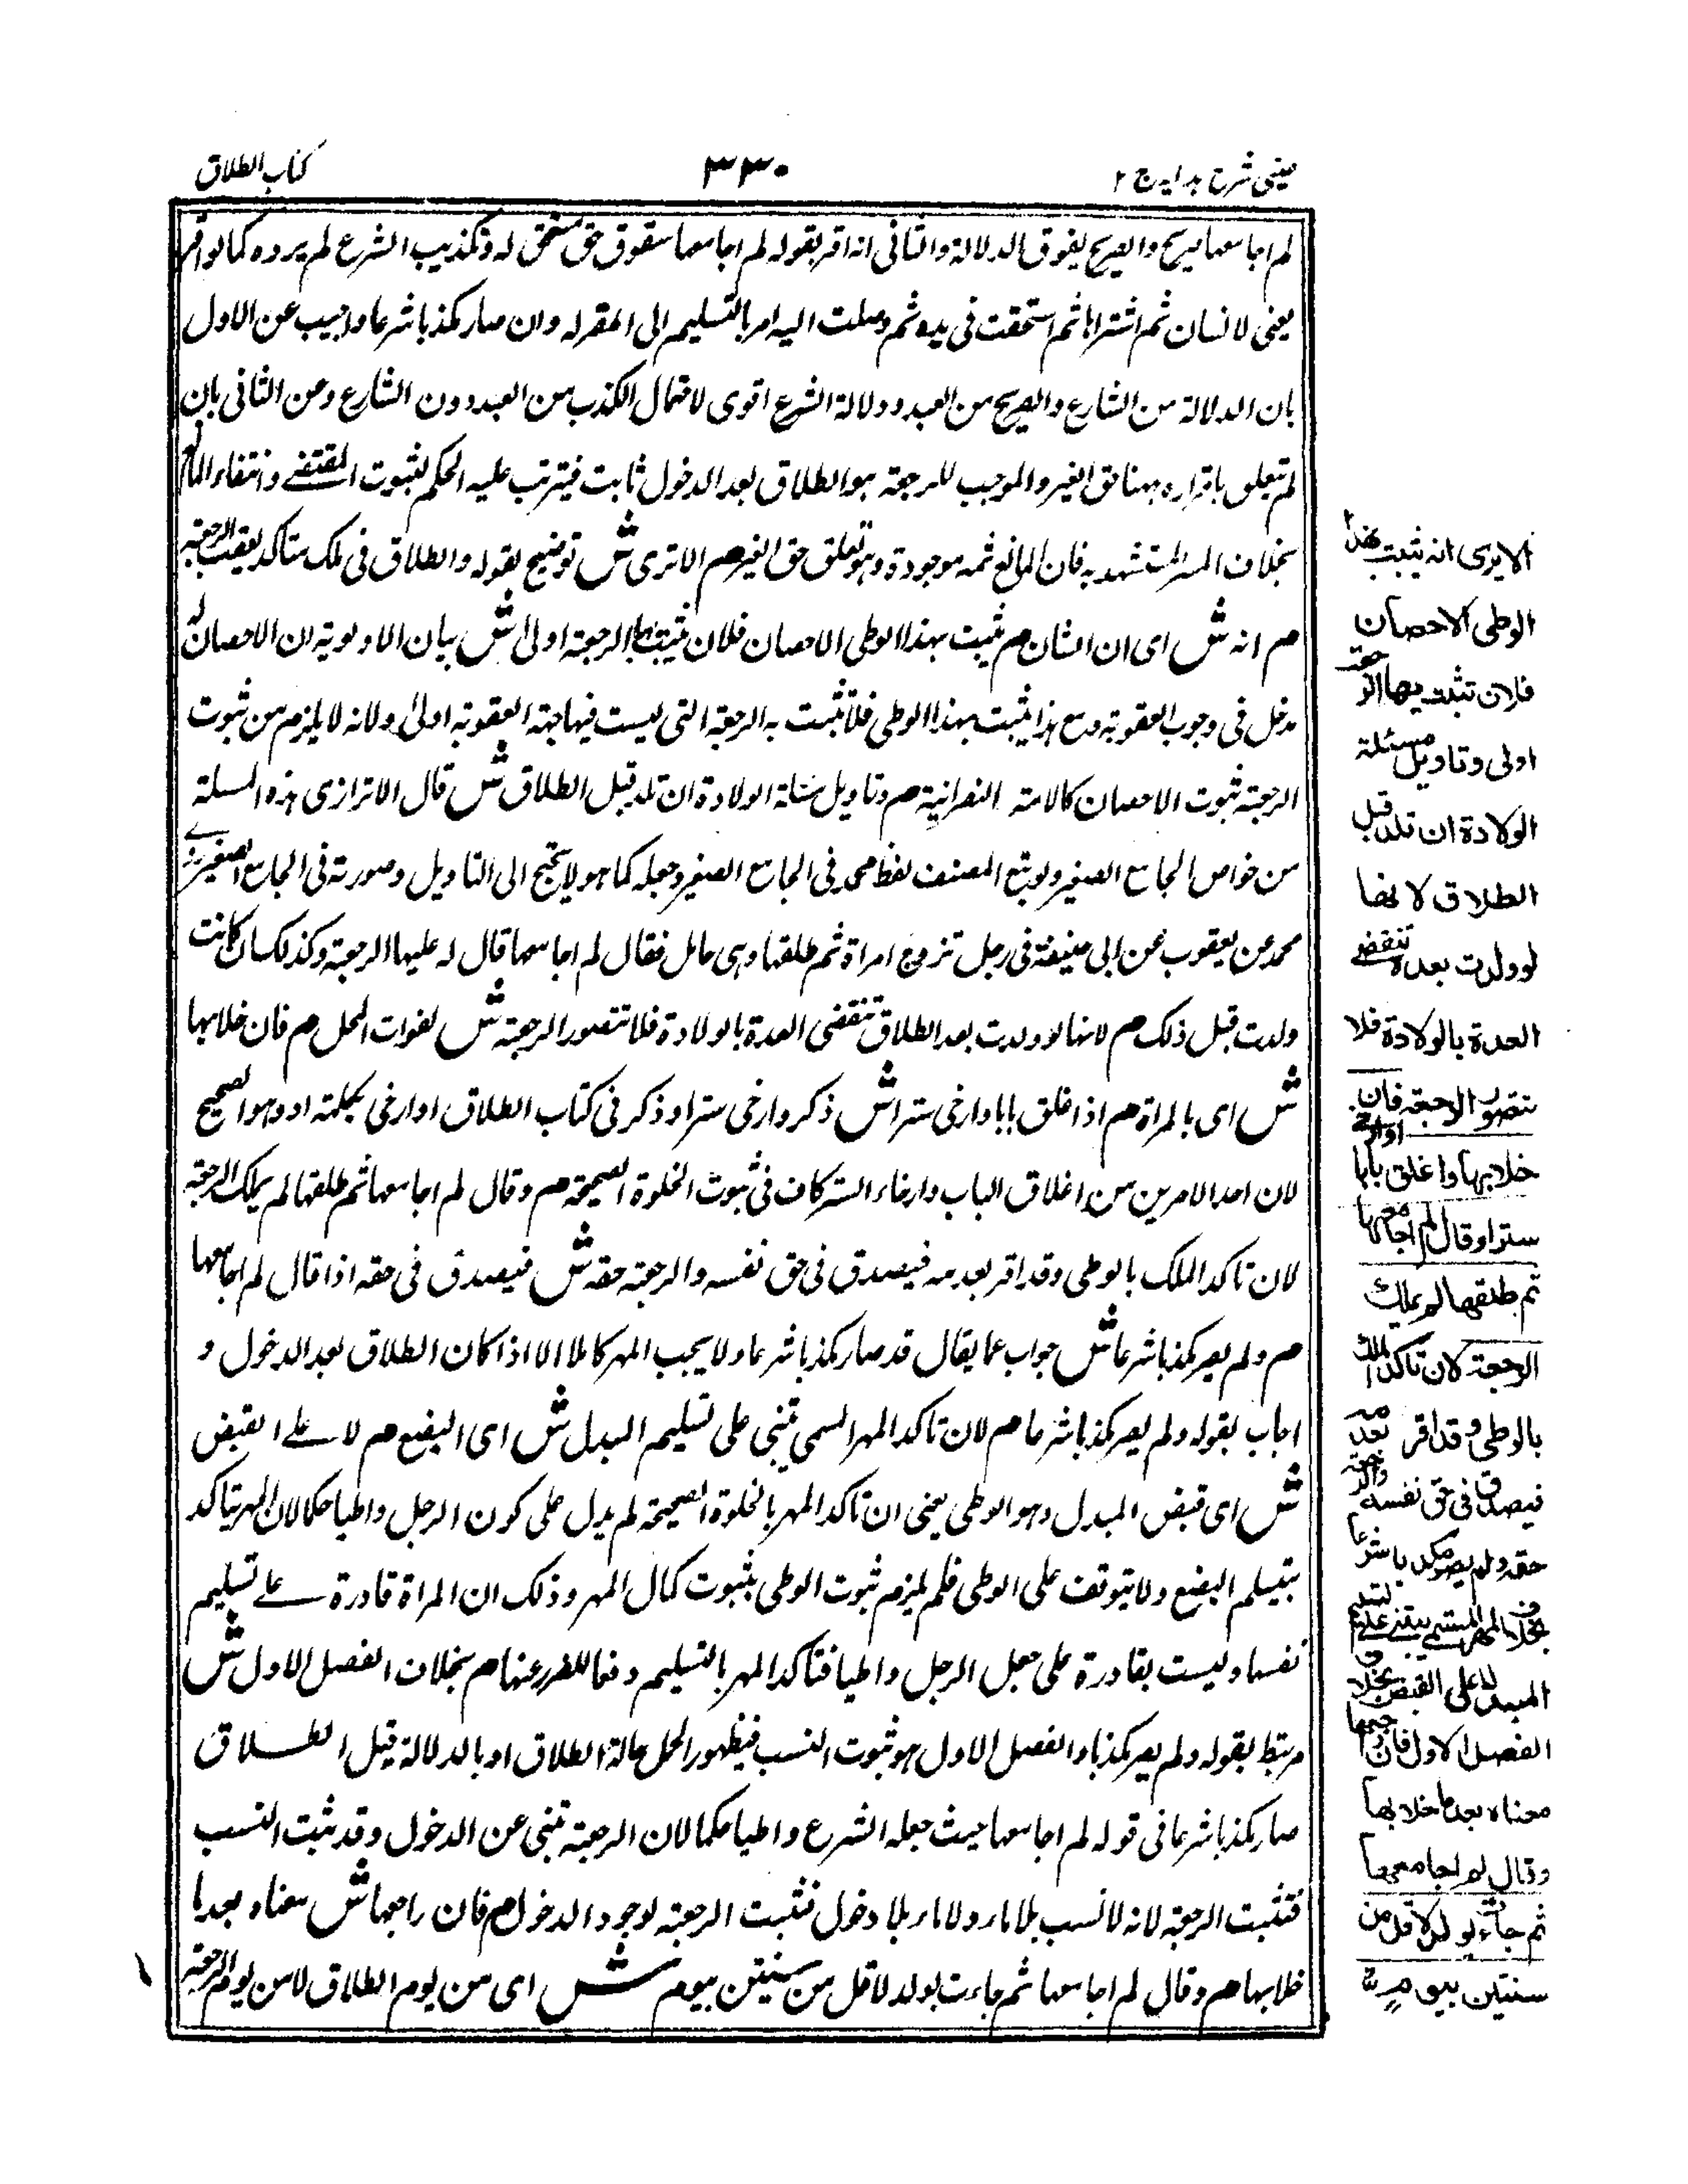 عینی شرح ہدایہ ج ۲
۳۳۰
کتاب الطلاق
لم اجامعها صریح والصریح یفوق الدلالة والثانی انه اقر بقوله لم اجامعها سقوق حق مستحق له وتکذیب الشرع لم یرده کما لو اقر
یعنی لانسان ثم اشتراها ثم استحقت فی یده ثم وصلت الیه امر بالتسلیم الی المقر له وان صار مکذبا شرعا واجیب عن الاول
بان الدلالة من الشارع والصریح من العبد ودلالة الشرع اقوی لاحتمال الکذب من العبد دون الشارع وعن الثانی بان
لم یتعلق باقراره ههنا حق الغیر والموجب للرجعة هو الطلاق بعد الدخول ثابت فیترتب علیه الحکم لثبوت المقتضے وانتفاء المانع
بخلاف المستشهد به فان المانع ثمه موجودة وهو تعلق حق الغیر م الا تری ش توضیح لقوله والطلاق فی ملک متاکد یعقب الرجعة
م انه ش ای ان الشان م یثبت بهذا الوطی الاحصان فلان تثبت به الرجعة اولی ش بیان الاولویة ان الاحصان له
مدخل فی وجوب العقوبة ومع هذا یثبت بهذا الوطی فلان تثبت به الرجعة التی لیست فیها جهة العقوبة اولی ولانه لا یلزم من ثبوت
الرجعة ثبوت الاحصان کالامة النصرانیة م وتاویل مسئلة الولادة ان تلد قبل الطلاق ش قال الاترازی هذه المسئلة
من خواص الجامع الصغیر ولو تبع المصنف لفظ محمد فی الجامع الصغیر وجعله کما هو لا یحتج الی التاویل وصورته فی الجامع الصغیر
محمد عن یعقوب عن ابی حنیفة فی رجل تزوج امراة ثم طلقها وهی حامل فقال لم اجامعها قال له علیها الرجعة وکذلک ان کانت
ولدت قبل ذلک م لانها لو ولدت بعد الطلاق تنقضی العدة بالولادة فلا تتصور الرجعة ش لفوات المحل م فان خلا بها
ش ای بالمراة م اذا غلق بابا وارخی سترا ش ذکر وارخی سترا وذکر فی کتاب الطلاق او ارخی بکلمة او وهو الصحیح
لان احد الامرین من اغلاق الباب وارخاء الستر کاف فی ثبوت الخلوة الصحیحة م وقال لم اجامعها ثم طلقها لم یملک الرجعة
لان تاکد الملک بالوطی وقد اقر بعدمه فیصدق فی حق نفسه والرجعة حقه ش فیصدق فی حقه اذا قال لم اجامعها
م ولم یصر مکذبا شرعا ش جواب عما یقال قد صار مکذبا شرعا ولا یجب المهر کاملا الا اذا کان الطلاق بعد الدخول و
اجاب بقوله ولم یصر مکذبا شرعا م لان تاکد المهر المسمی تبنی علی تسلیم المبدل ش ای البضع م لا علے القبض
ش ای قبض المبدل وهو الوطی یعنی ان تاکد المهر بالخلوة الصحیحة لم یدل علی کون الرجل واطیا حکما لان المهر یتاکد
بتسلیم البضع ولا یتوقف علی الوطی فلم یلزم ثبوت الوطی بثبوت کمال المهر وذلک ان المراة قادرة علے تسلیم
نفسها ولیست بقادرة علی جعل الرجل واطیا فتاکد المهر بالتسلیم دفعا للضرر عنها م بخلاف الفصل الاول ش
مرتبط بقوله ولم یصر مکذبا والفصل الاول هو ثبوت النسب فیظهور الحمل حالة الطلاق او بالدلالة قبل الطلاق
صار مکذبا شرعا فی قوله لم اجامعها حیث جعله الشرع واطیا حکما لان الرجعة تبنی عن الدخول وقد ثبت النسب
فتثبت الرجعة لانه لا نسب بلا ماء ولا ماء بلا دخول فتثبت الرجعة لوجود الدخول م فان راجعها ش معناه بعدما
خلا بها م وقال لم اجامعها ثم جاءت بولد لاقل من سنتین بیوم ش ای من یوم الطلاق لا من یوم الرجعة
الا یری انه یثبت بهذا
الوطی الاحصان
فلان تثبت بها الرجعة
اولی وتاویل مسئلة
الولادة ان تلد قبل
الطلاق لانها
لو ولدت بعده تنقضے
العدة بالولادة فلا
تتصور الرجعة فان
خلا بها واغلق بابا او ارخی
سترا وقال لم اجامعها
ثم طلقها لم یملک
الرجعة لان تاکد الملک
بالوطی وقد اقر بعدمه
فیصدق فی حق نفسه والرجعة
حقه ولم یصر مکذبا شرعا
بخلاف المهر المسمی یبتنے علے تسلیم
المبدل لا علی القبض بخلاف
الفصل الاول فان راجعها
معناه بعد ما خلا بها
وقال لم اجامعها
ثم جاءت بولد لاقل من
سنتین بیوم